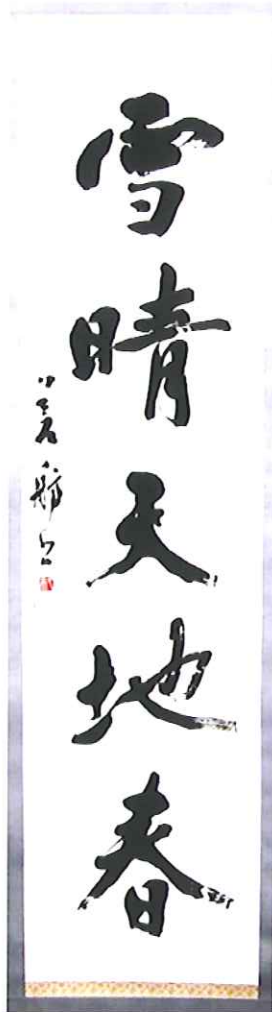 雪晴天地春